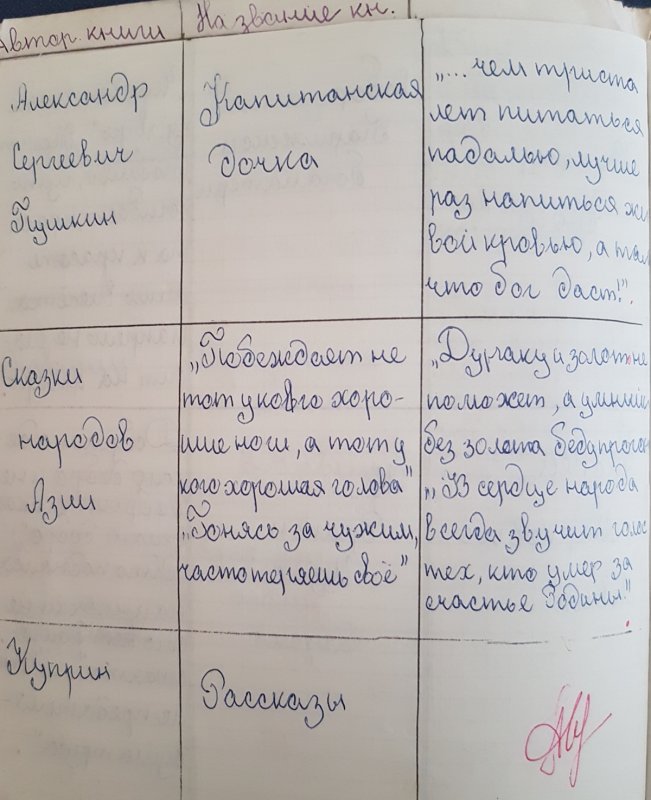 Автор книги
Название кн.
Александр
Сергеевич
Пушкин
Капитанская
дочка
„...чем триста
лет питаться
падалью, лучше
раз напиться жи
вой кровью, а там
что бог даст!".
Сказки
народов
Азии
„Побеждает не
тот у ковго хоро-
шие ноги, а тот у
кого хорошая голова"
„Гонясь за чужим,
часто теряешь своё"
„Дураку и золот не
поможет, а умный
без золота беду прогон
„В сердце народа
всегда звучит голос
тех, кто умер за
счастье Родины."
Куприн
Рассказы